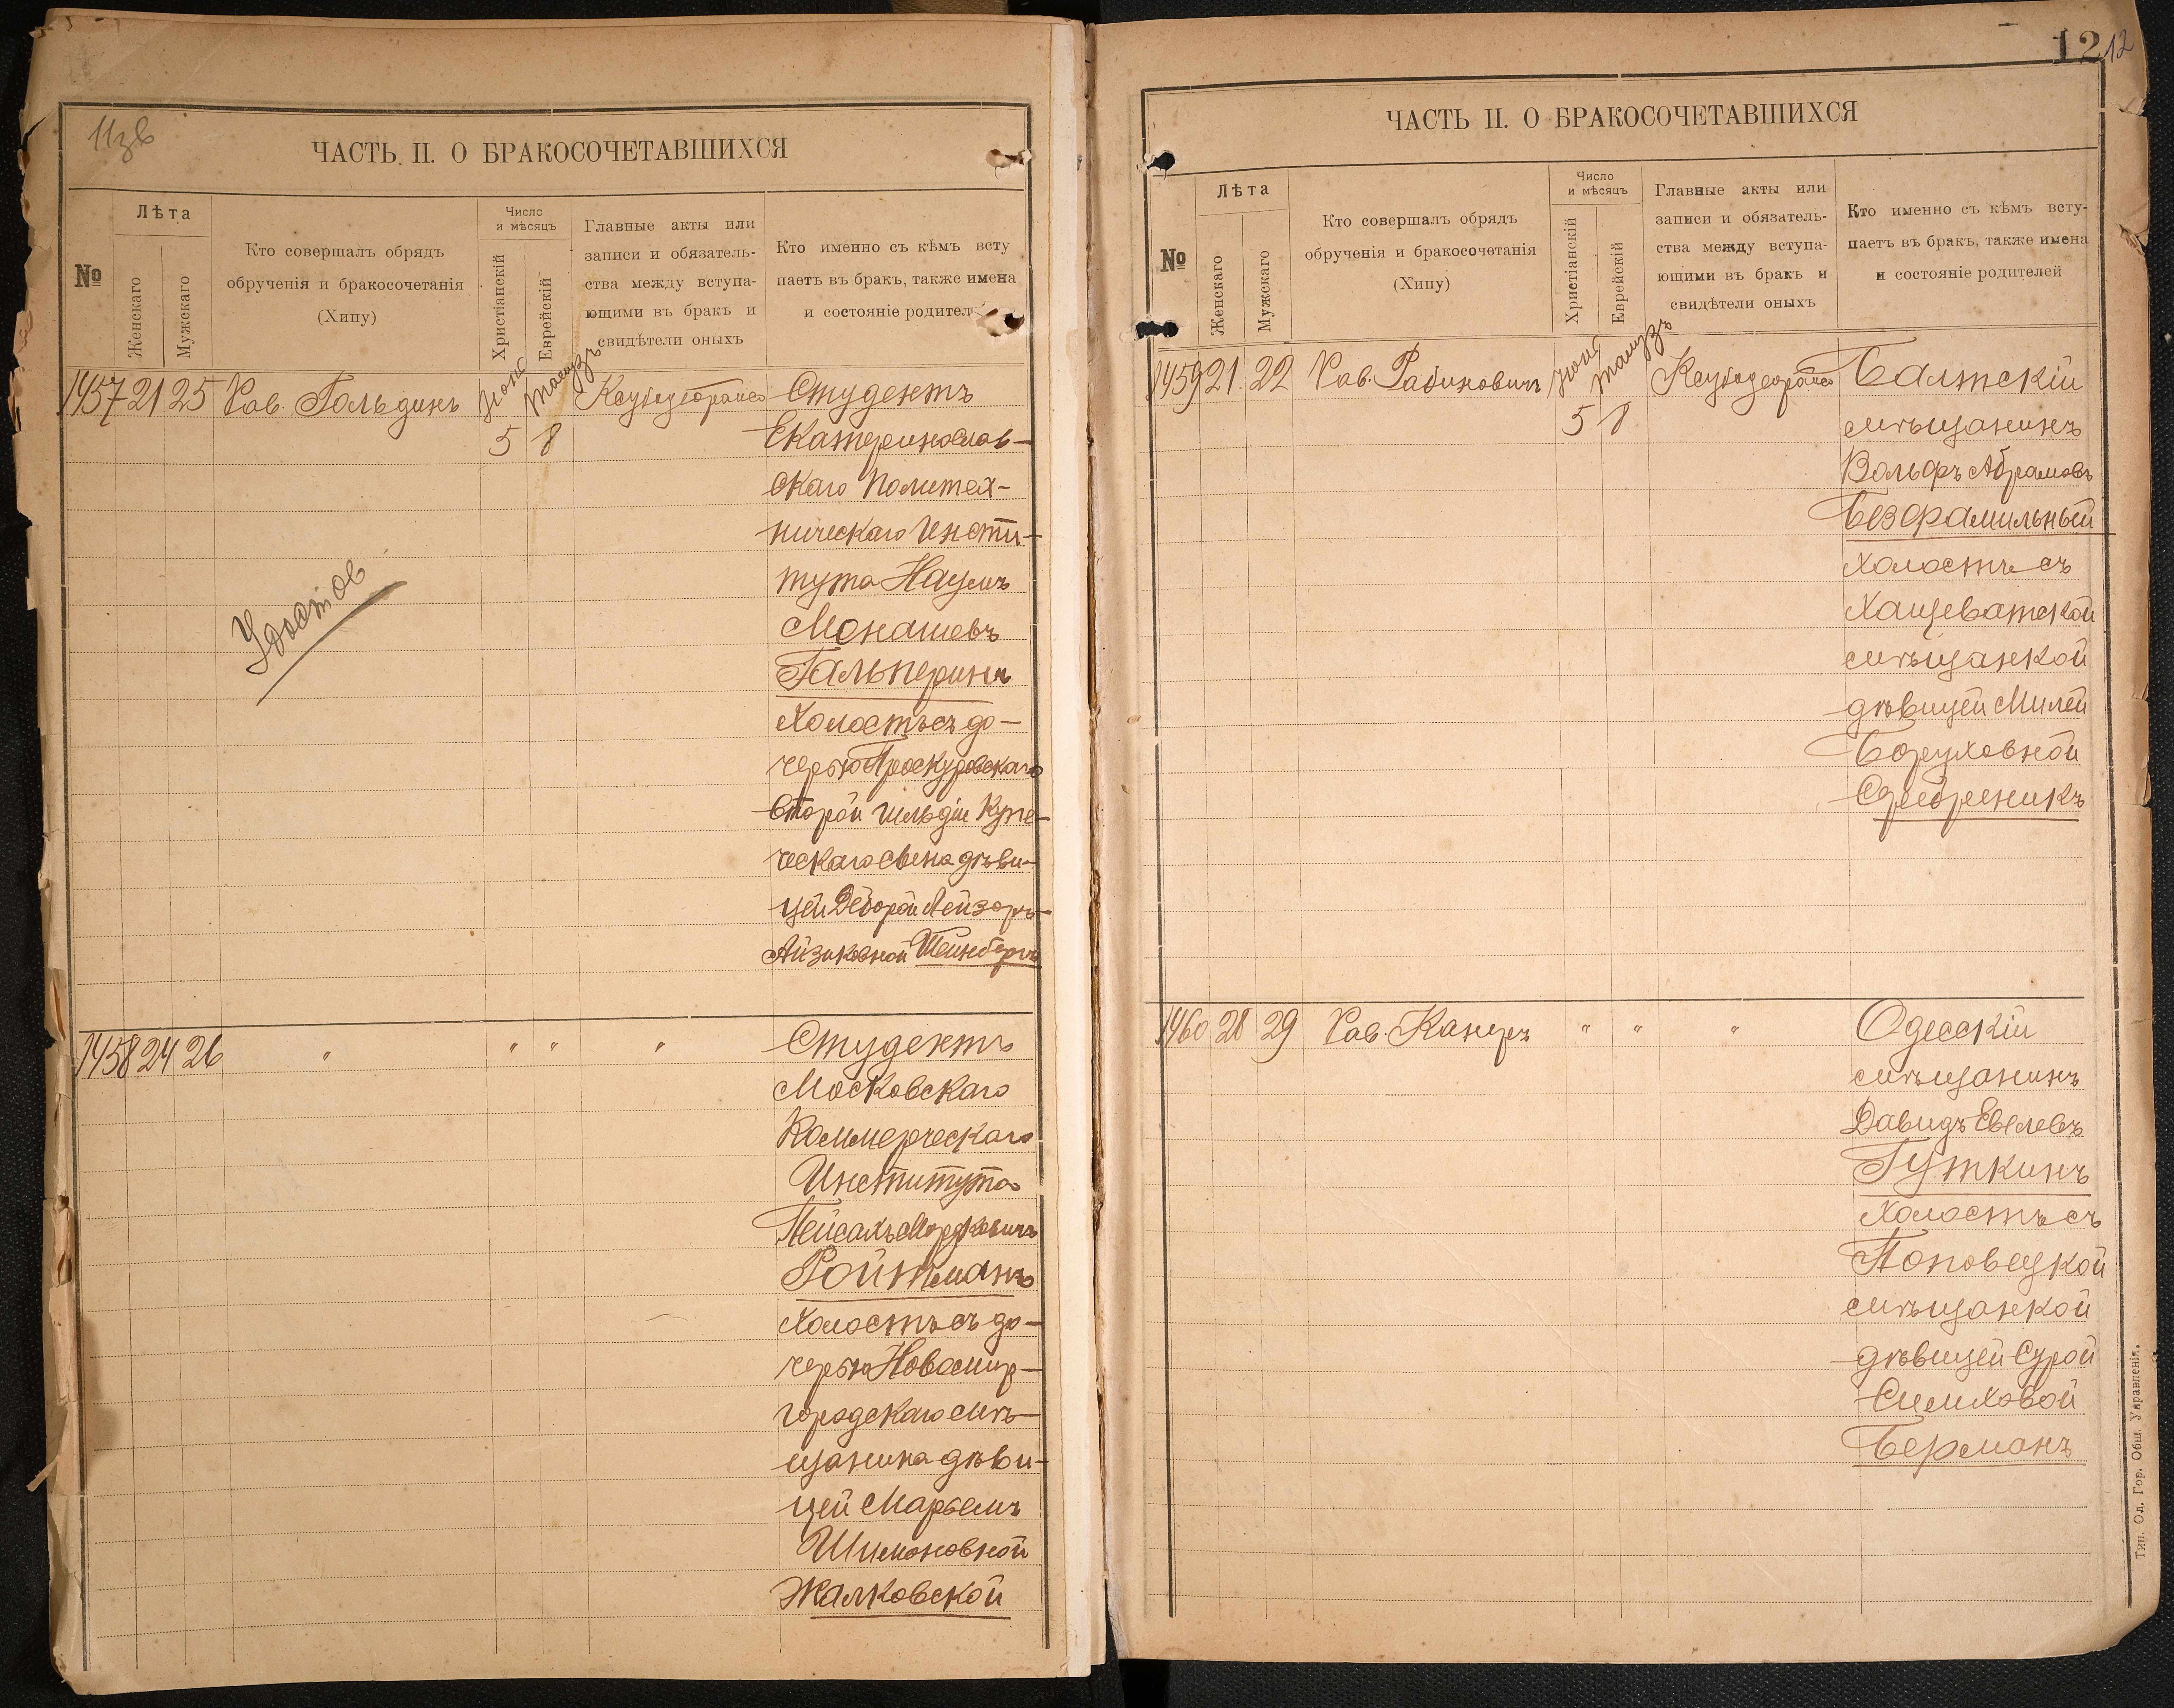 11зв
ЧАСТЬ II. О БРАКОСОЧЕТАВШИХСЯ
№
Лѣта
Женскаго
Мужскаго
Кто совершалъ обрядъ
обрученія и бракосочетанія
(Хипу)
Число
и мѣсяцъ
Христіанскій
Еврейскій
Главные акты или
записи и обязатель-
ства между вступа-
ющими въ бракъ и
свидѣтели оныхъ
Кто именно съ кѣмъ всту
паетъ въ брак, также имена
и состояніе родител
1457 21 25 Рав. Гольдинъ
Тамузъ
5 8
Студентъ
Екатеринослав-
скаго Политех-
ническаго Инсти-
тута Наумъ
Монашевъ
Гальперинъ
холостъ съ до-
черью Проскуровскаго
второй гильдіи Купе-
ческаго сына дѣви-
цей Деборой Лейзоръ-
Айзиковной Штейнбергъ
Удостов
1458 24 26 " " " "
Студентъ
Московскаго
Коммерческаго
Института
Пейсахъ Мордковичъ
Ройтманъ
холостъ съ до-
черью Новомир-
городскаго мѣ-
щанина дѣви-
цей Марьемъ
Шимоновной
Жалковской
12 12
ЧАСТЬ II. О БРАКОСОЧЕТАВШИХСЯ
№
Лѣта
Женскаго
Мужскаго
Кто совершалъ обрядъ
обрученія и бракосочетанія
(Хипу)
Число
и мѣсяцъ
Христіанскій
Еврейскій
Главные акты или
записи и обязатель-
ства между вступа-
ющими въ бракъ и
свидѣтели оныхъ
Кто именно съ кѣмъ всту-
паетъ въ бракъ, также имена
и состояніе родителей
1459 21 22 Рав. Рабиновичъ
Тамузъ
5 8
Балтскій
мѣщанинъ
Вольфъ Абрамовъ
Безфамильный
холостъ съ
Хащеватской
мѣщанкой
дѣвицей Милей
Боруховной
Сребреникъ
1460 28 29 Рав. Канеръ " " "
Одесскій
мѣщанинъ
Давидъ Евелевъ
Гуткинъ
холостъ съ
Поповецкой
мѣщанкой
дѣвицей Сурой
Симховой
Берманъ
Тип. Од. Гор. Общ. Управленія.